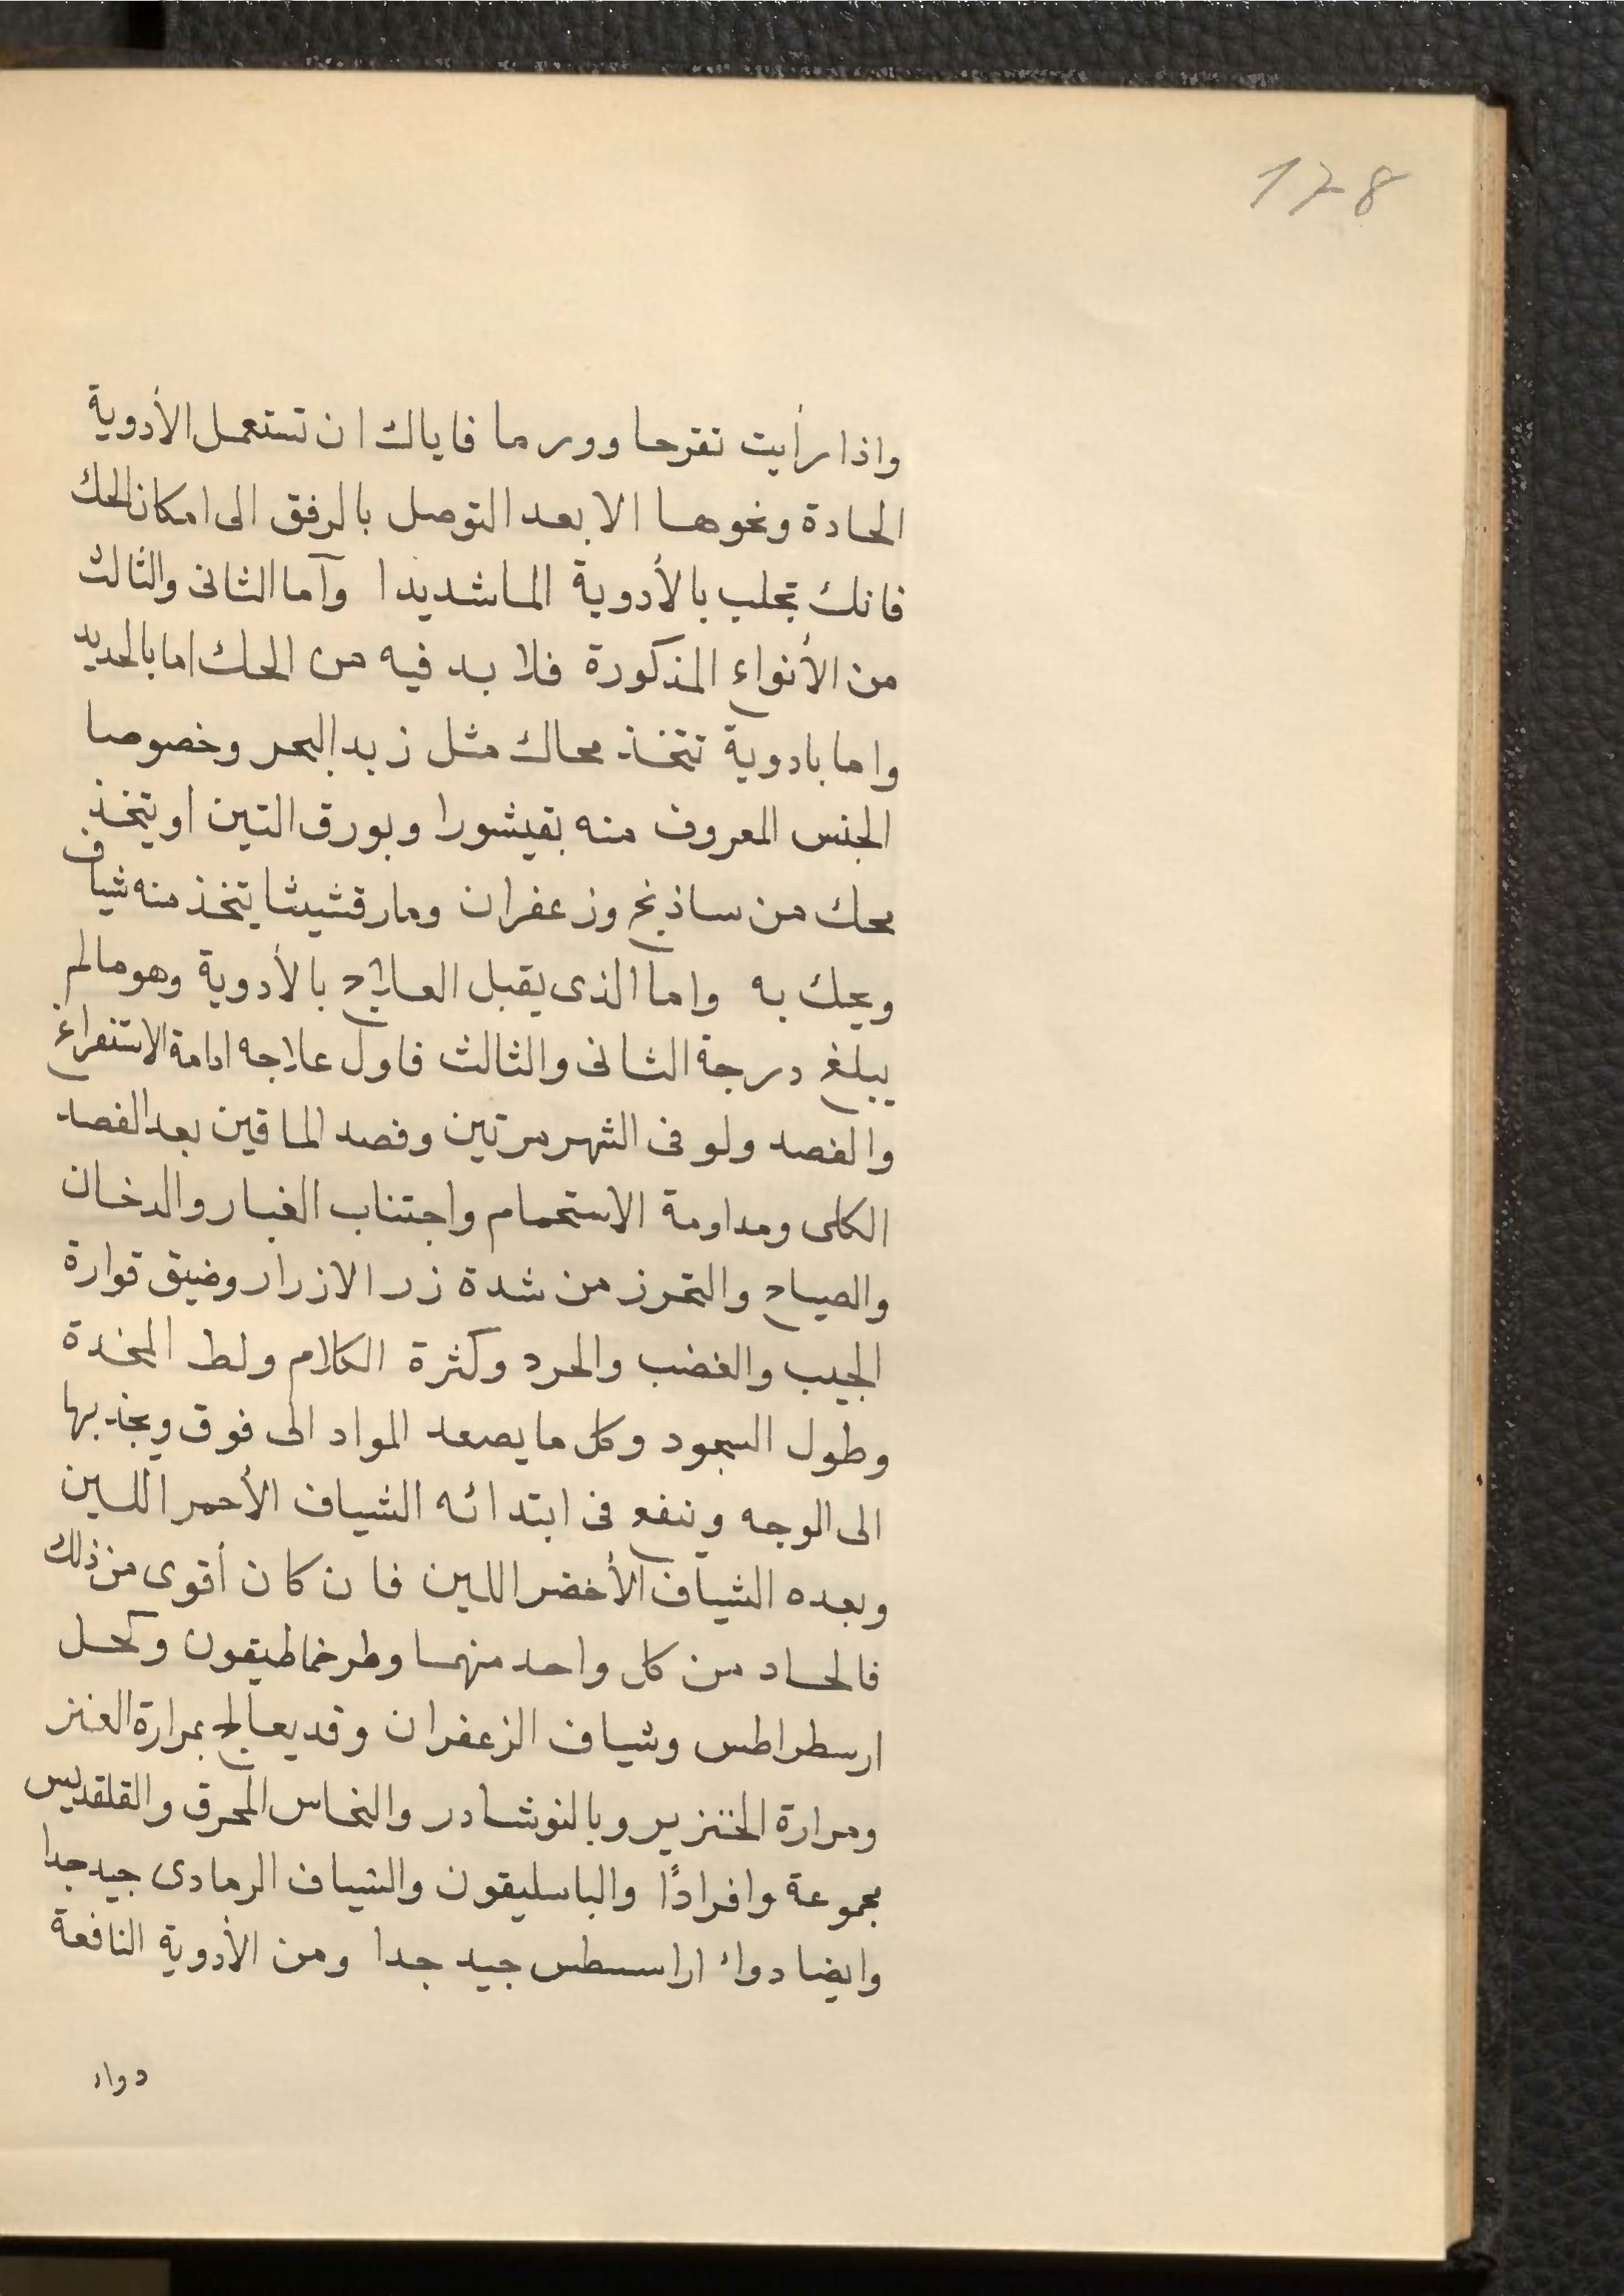 128
واذا رأيت تقرحا وورما فاياك ان تستعمل الأدوية
الحادة ونحوها الا بعد التوصل بالرفق الى امكان الحك
فانك تجلب بالأدوية الما شديدا وآما الثانى والثالث
من الأنواع المذكورة فلا بد فيه من الحك اما بالحديد
واما بادوية تتخذ محاك مثل زبد البحر وخصوصا
الجنس المعروف منه بقيشورا وبورق التين او يتخذ
محك من ساذنج وزعفران ومارقشيثا يتخذ منه شياف
ويحك به واما الذى يقبل العلاج بالأدوية وهو مالم
يبلغ درجة الثانى والثالث فاول علاجه ادامة الاستفراغ
والفصد ولو فى الشهر مرتين وفصد الماقين بعد الفصد
الكلى ومداومة الاستحمام واجتناب الغبار والدخان
والصياح والتحرز من شدة زر الازرار وضيق قوارة
الجيب والغضب والحرد وكثرة الكلام ولط المخدة
وطول السجود وكل ما يصعد المواد الى فوق ويجذبها
الى الوجه وينفع فى ابتدائه الشياف الأحمر اللين
وبعده الشياف الأخضر اللين فان كان أقوى من ذلك
فالحاد من كل واحد منهما وطرخماطيقون وكحل
ارسطراطس وشياف الزعفران وقد يعالج بمرارة العنز
ومرارة الخنزير وبالنوشادر والنحاس المحرق والقلقديس
مجموعة وافرادًا والباسليقون والشياف الرمادى جيد جدا
وايضا دواء اراسسطس جيد جدا ومن الأدوية النافعة
دواء